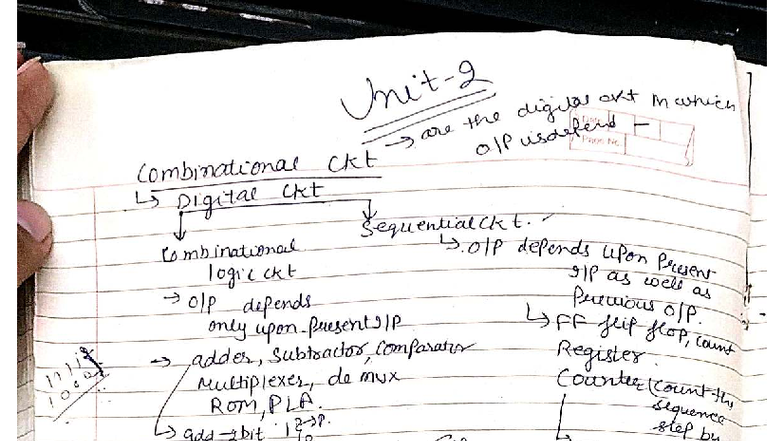 Unit-2
→ are the digital ckt in which
O/P is depend –
Date
Page No.
Combinational Ckt
↳ Digital Ckt
Combinational
logic ckt
→ O/P depends
only upon present I/P
→ adder, subtractor, comparator
Multiplexer, de mux
ROM, PLA.
↳ add → bit
Sequential Ckt.
↳ O/P depends upon Present
I/P as well as
Previous O/P.
↳ FF flip flop, count
Register
Counter (count the
sequence
step by